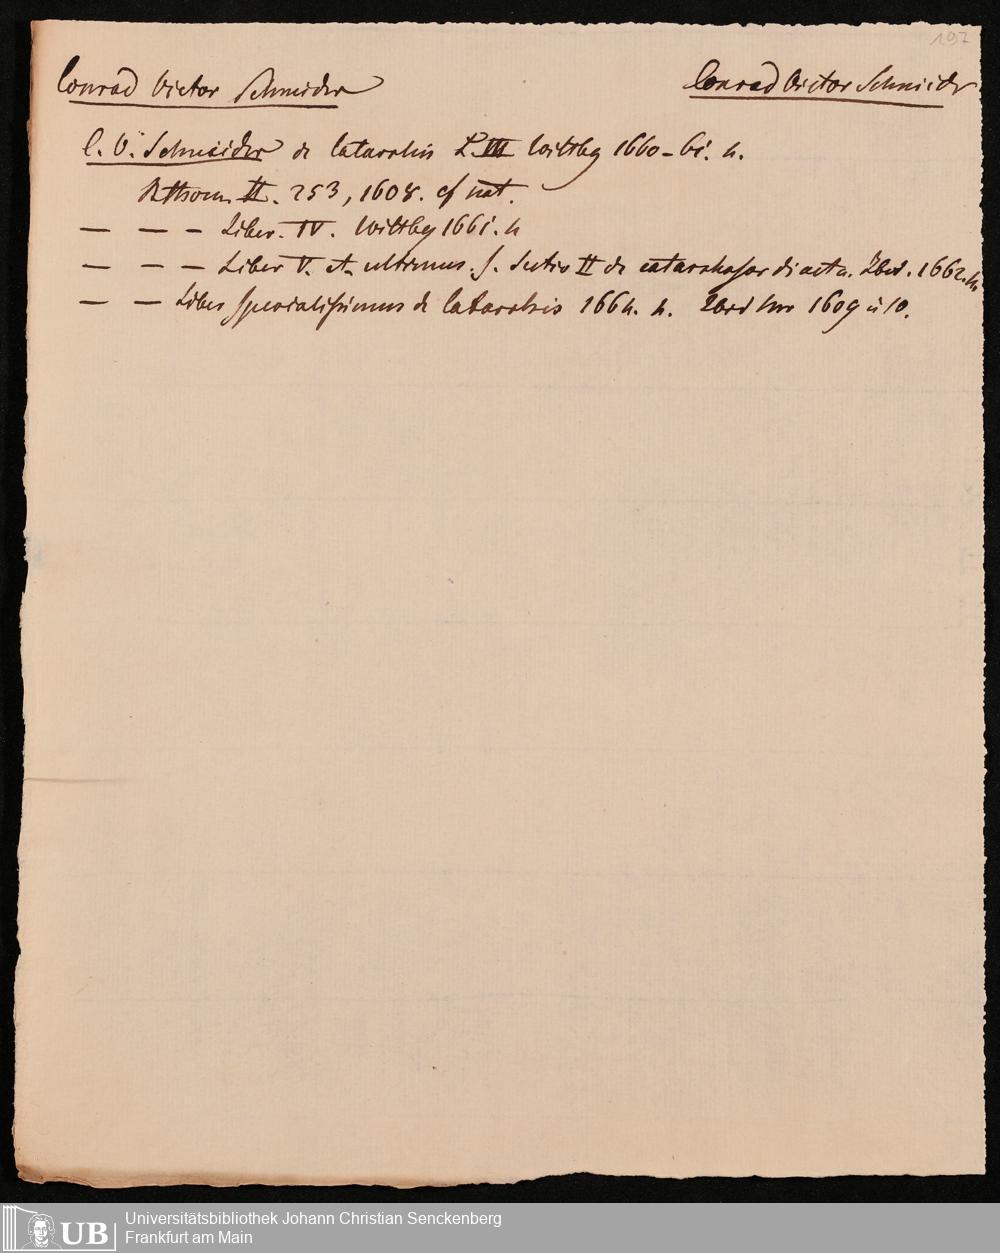 197
Conrad Victor Schneider Conrad Victor Schneider
C. V. Schneider de Catarrhis L. III Wittbg 1660-61. 4.
II. 253, 1608. cf nat.
— — — Liber. IV. Wittbg 1661. 4
— — — Liber V. et ultimus. s. Sectio II de catarrhosor diaeta. Ibid. 1662. 4.
— — Liber specialissimus de Catarrhis 1664. 4. Ibid 1609 u 10.
UB Universitätsbibliothek Johann Christian Senckenberg
Frankfurt am Main